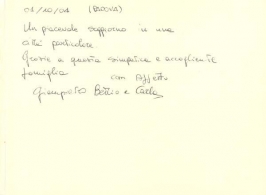 01/10/04 (PADOVA)
Un piacevole soggiorno in una
città particolare.
Grazie a questa simpatica e accogliente
famiglia
con affetto
Giampietro e Carla